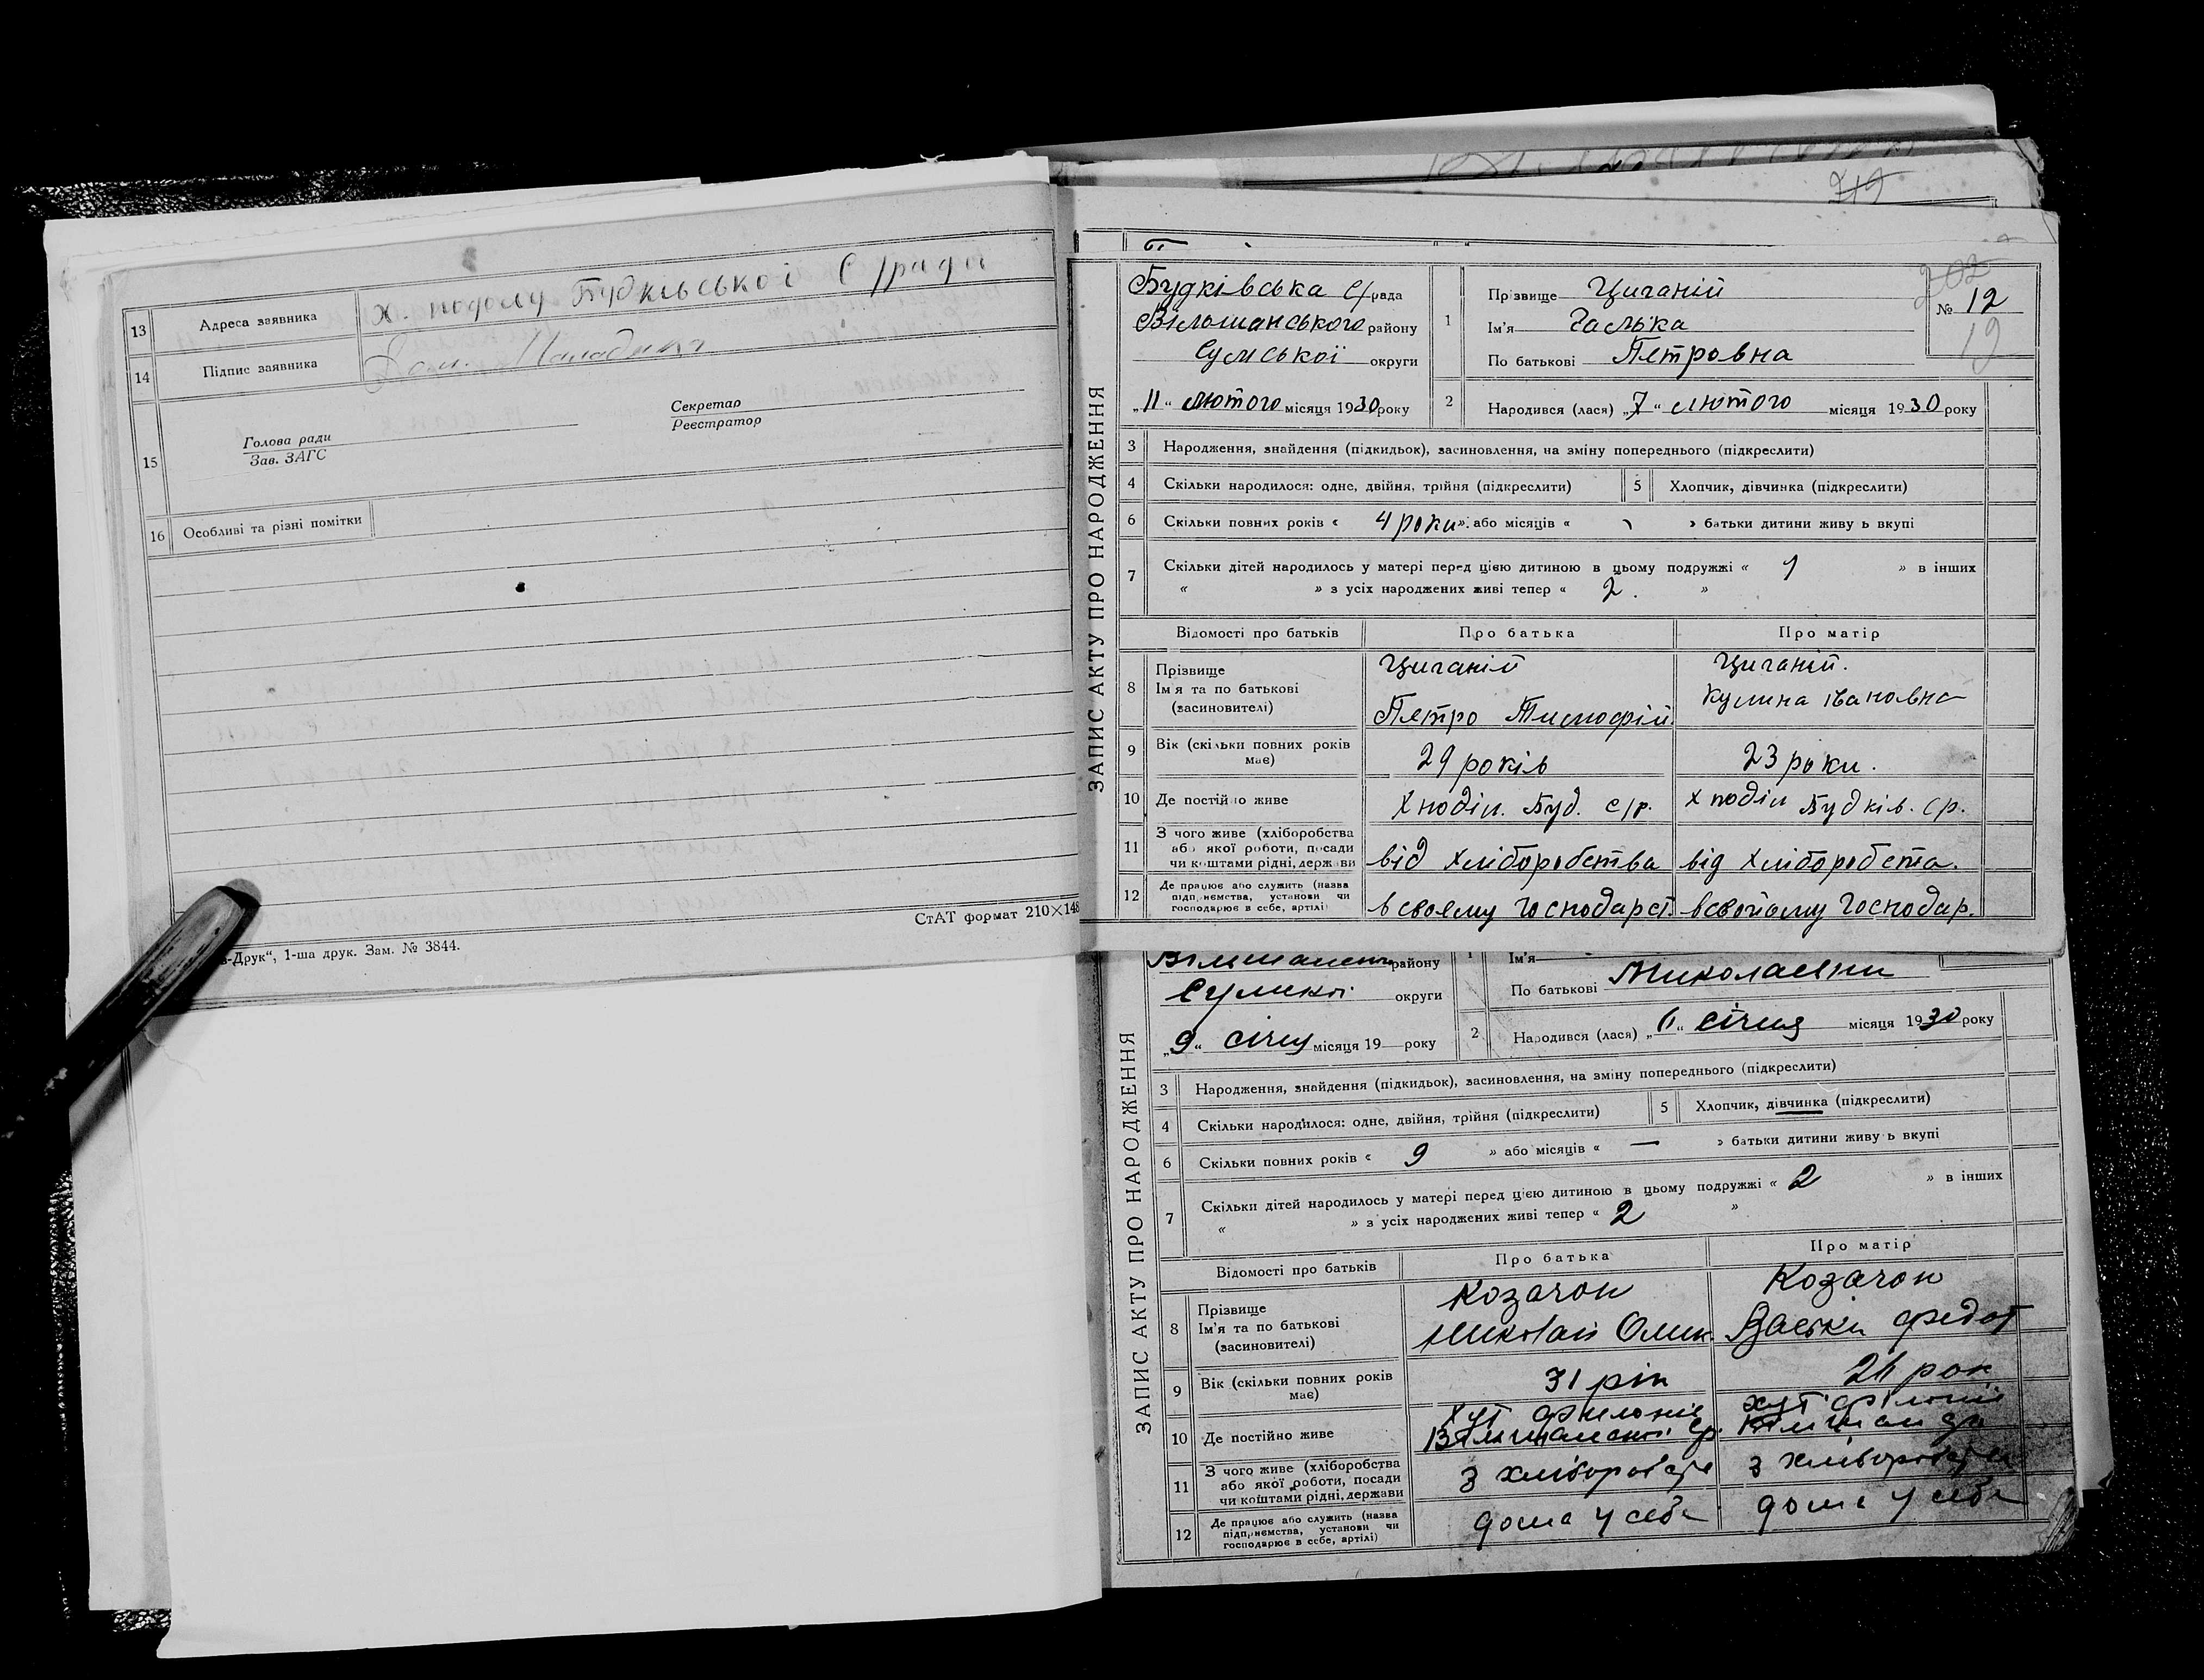 13 Адреса заявника х. подолу Будківської С/ради
14 Підпис заявника
15
Секретар
Реєстратор
Голова ради
Зав. ЗАГС
16 Особливі та різні помітки
СтАТ формат 210×148
-Друк“, 1-ша друк. Зам. № 3844.
219
202
ЗАПИС АКТУ ПРО НАРОДЖЕННЯ
Будківська с/рада
Вільшанського району
Сумської округи
„11“ лютого місяця 1930 року
1 Прізвище Циганій
Ім'я Галька
По батькові Петровна
№ 12
19
2 Народився (лася) „7“ лютого місяця 1930 року
3 Народження, знайдення (підкидьок), засиновлення, на зміну попереднього (підкреслити)
4 Скільки народилося: одне, двійня, трійня (підкреслити) 5 Хлопчик, дівчинка (підкреслити)
6 Скільки повних років « 4 роки ». або місяців « » батьки дитини живу ь вкупі
7 Скільки дітей народилось у матері перед цією дитиною в цьому подружжі « 1 » в інших
« » з усіх народжених живі тепер « 2. »
Відомості про батьків Про батька Про матір
8 Прізвище Циганій Циганій.
Ім'я та по батькові
(засиновителі) Петро Тимофій Кулина івановна
9 Вік (скільки повних років має) 29 років 23 роки.
10 Де постійно живе Х поділ. Буд. с/р. х поділ Будків. ср.
11 З чого живе (хліборобства
або якої роботи, посади
чи коштами рідні, держави від хліборобства від хліборобста.
12 Де працює або служить (назва
підприємства, установи чи
господарює в себе, артілі) в своєму господарст. в свойому господар.
ЗАПИС АКТУ ПРО НАРОДЖЕННЯ
району
Сумскої округи
„9“ січня місяця 19 року
1 Ім'я
По батькові Миколаевни
2 Народився (лася) „6“ січня місяця 1930 року
3 Народження, знайдення (підкидьок), засиновлення, на зміну попереднього (підкреслити)
4 Скільки народилося: одне, двійня, трійня (підкреслити) 5 Хлопчик, дівчинка (підкреслити)
6 Скільки повних років « 9 » або місяців « — » батьки дитини живу ь вкупі
7 Скільки дітей народилось у матері перед цією дитиною в цьому подружжі « 2 » в інших
« » з усіх народжених живі тепер « 2 »
Відомості про батьків Про батька Про матір
8 Прізвище Козачок Козачок
Ім'я та по батькові
(засиновителі) Николай Омик. Васьки Федот
9 Вік (скільки повних років має) 31 рік 26 рок
10 Де постійно живе хут ср. хут
11 З чого живе (хліборобства
або якої роботи, посади
чи коштами рідні, держави з хліборобст з хліборобст
12 Де працює або служить (назва
підприємства, установи чи
господарює в себе, артілі) дома у себе дома у себе